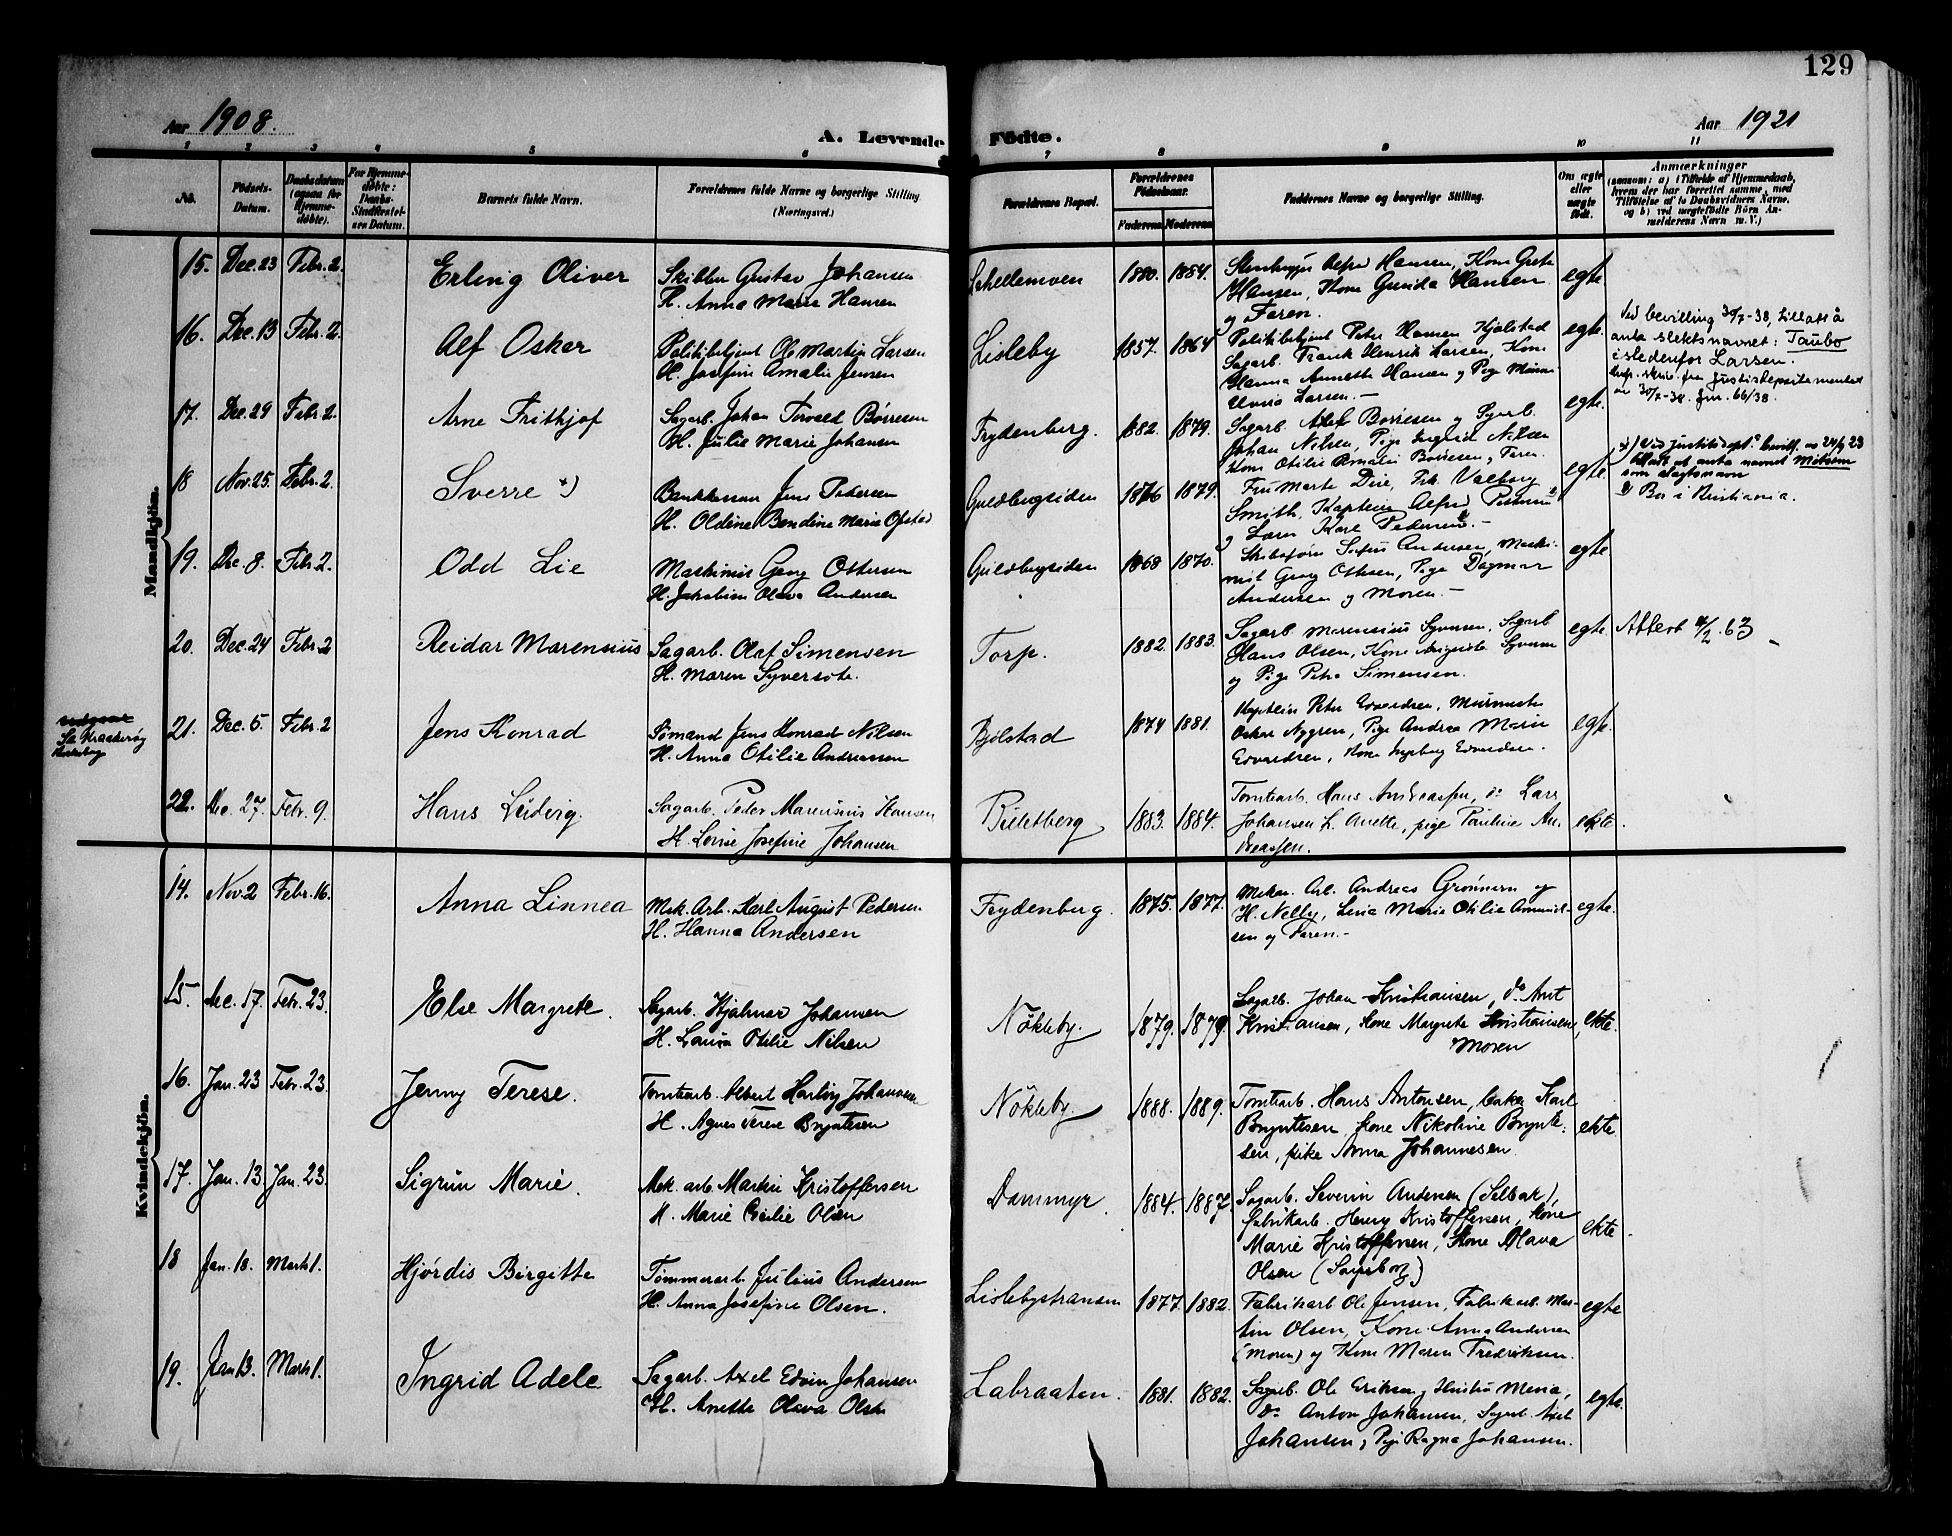 129
Aar 1908.
A. Levende Födte.
Aar 1921
1 2 3 4 5 6 7 8 9 10 11
No.
Födsels-Datum.
Daabsdatum (ogsaa for Hjemmedöbte).
For Hjemmedöbte: Daabs-Stadfæstelses Datum.
Barnets fulde Navn.
Forældrenes fulde Navne og borgerlige Stilling (Næringsvei.)
Forældrenes Bopæl.
Forældrenes Födselsaar.
Faderens Moderens
Faddernes Navne og borgerlige Stilling.
Om ægte eller uægte födt.
Anmærkninger
(saasom: a) i Tilfælde af Hjemmedaab,
hvem der har forrettet samme, med
Tilföielse af to Daabsvidners Navne,
og b) ved uægtefödte Börn An-
melderens Navn m. V.)
Mandkjön.
15. Dec. 23 Febr. 2. Erling Oliver
Gustav Johansen
H. Anna Marie Hansen
1880. 1884.
Hansen, Kone Grete
Hansen, Kone Gunda Hansen
og Faren.
egte
16. Dec. 13 Febr. 2. Alf Oskar
Politibetjent Ole Martin Larsen
H. Josefine Amalie Jensen
Lisleby 1857. 1864
Politibetjent Peter Hansen Kjølstad
Sagarb. Frank Henrik Larsen, Kone
Hanna Annette Hansen og Pige
Larsen.-
egte.
Ved bevilling 30/7-38, tillatt å
anta slektsnavnet: Taubo
istedenfor Larsen.
skriv. fra Justisdepartementet
av 30/7-38. Jnr. 66/38.
17. Dec. 29 Febr. 2. Arne Frithjof
Sagarb. Johan Torvald Børresen
H. Julie Marie Johansen
Frydenberg. 1882. 1879.
Sagarb. Børresen og Sagarb.
Johan Nilsen, Pige Ingrid Nilsen
Kone Otilie Amalie Børresen og Faren.
egte.
18 Nov. 25. Febr. 2. Sverre x)
Jens Pedersen
H. Oldine Bendine Marie
Guldbergsiden 1876 1879.
Fru Marte Frk. Valborg
Smith, Kaptein Alfred
og Karl Pedersen.-
egte.
x) Ved Justitsdept.s bevill. av 24/9 23
tillatt at anta navnet
som slegtsnavn
Bor i Kristiania.
19. Dec. 8. Febr. 2. Odd Lie
Maskinist Georg Ottersen
H. Jakobine Olava Andersen
Guldbergsiden 1868 1870.
Skibsfører Andersen, Maski-
nist Georg Ottersen, Pige Dagmar
Andersen og Moren.-
egte
20. Dec. 24 Febr. 2 Reidar Marensius
Sagarb. Olaf Simensen
H. Maren Syversdtr.
Torp. 1882 1883.
Sagarb. Marensius Syversen, Sagarb
Hans Olsen, Kone Auguste Syversen
og Pige Petra Simensen.
egte.
Attest /2. 63
Kraakerøy
21. Dec. 5 Febr. 2 Jens Konrad
Sømand Jens Konrad Nilsen
H. Anna Otilie Andreassen
Bjølstad 1874 1881.
Kaptein Peter Edvardsen, Murmester
Oskar Nygren, Pige Andrea Marie
Edvardsen, Kone Ingeborg Edvardsen.
egte.
22. Dec. 27. Febr. 9. Hans Ludvig.
Sagarb. Peder Marensius Hansen
H. Lovise Josefine Johansen
1883. 1884.
Tomtearb. Hans Andreassen, do Lars
Johansen h. Anette, pige Pauline An-
dreassen.
ekte.
Kvindekjön.
14. Nov. 2 Febr. 16. Anna Linnea
Mek. Arb. Karl August Pedersen
H. Hanna Andersen
Frydenberg. 1875. 1877.
Mekan. Arb. Andreas Grønnern og
H. Nelly, Marie Otilie Amund-
sen og Faren.-
egte.
15. Dec. 17. Febr. 23. Else Margrete.
Sagarb. Hjalmar Johansen
H. Laura Otilie Nilsen
Nökleby. 1879. 1879.
Sagarb. Johan Kristiansen, do Arnt
Kristiansen, Kone Margrete Kristiansen,
Moren
ekte.
16. Jan. 23 Febr. 23. Jenny Terese.
Tomtearb. Albert Hartvig Johansen
H. Agnes Terese Bryntesen
Nökleby. 1888. 1889.
Tomtearb. Hans Antonsen, Karl
Bryntesen, kone Nikoline Brynte-
sen, pike Anna Johannesen
ekte
17. Jan. 13. Jan. 23. Sigrun Marie.
Mek. arb. Martin Kristoffersen
H. Marie Cecilie Olsen
Dammyr. 1884. 1887.
Sagarb. Severin Andersen (Selbak),
fabrikarb. Henry Kristoffersen, Kone
Marie Kristoffersen, Kone Olava
Olsen (Sarpsborg)
ekte.
18 Jan. 18. Marts 1. Hjørdis Birgitte
Tømmerarb. Julius Andersen
H. Anna Josefine Olsen.
Lislebystranden 1877. 1882.
Fabrikarb. Ole Jensen, Fabrikarb. Mar-
tin Olsen, Kone Anna Andersen
(Moren) og Kone Maren Fredriksen.
egte
19. Jan 13. Marts 1. Ingrid Adele
Sagarb. Axel Edvin Johansen
H. Anette Olava Olsen
Labraaten. 1881. 1882.
Sagarb. Ole Eriksen og Hustru Maria,
do Anton Johansen, Sagarb. Axel
Johansen, Pige Ragna Johansen.
egte.